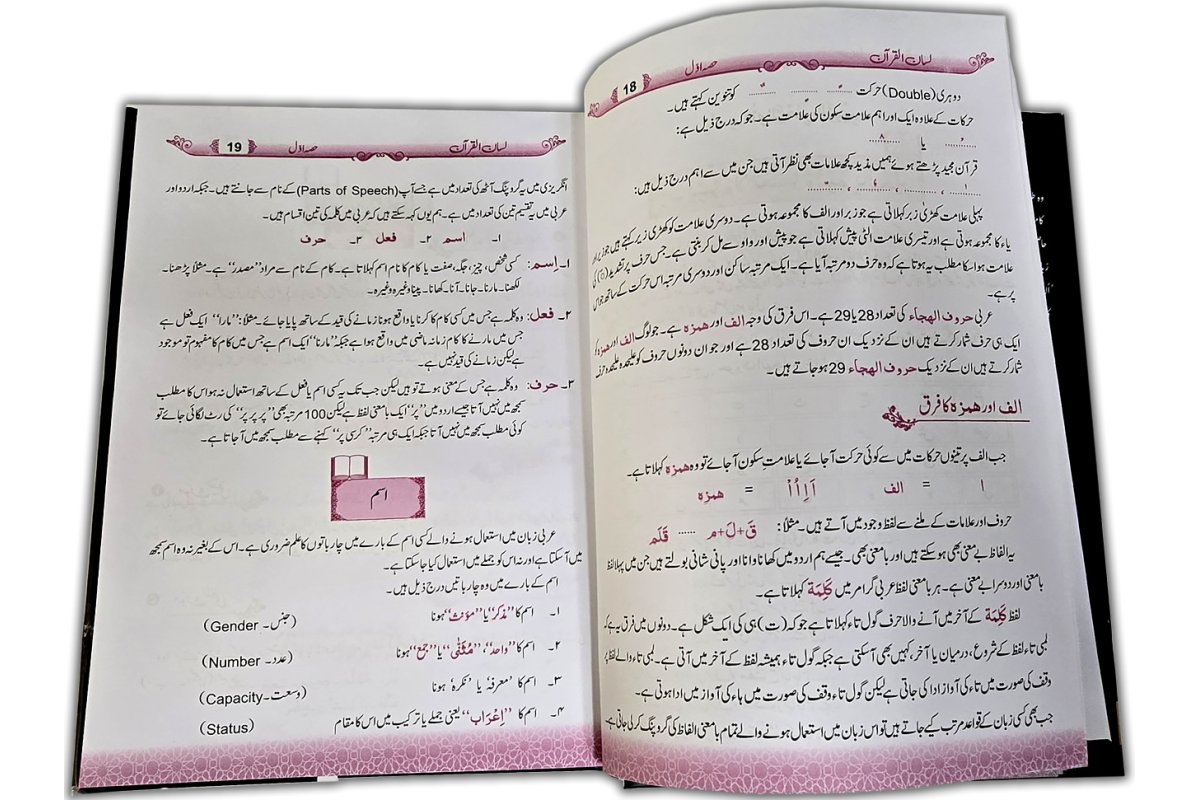 لسان القرآن حصہ اوّل 18
دوہری (Double) حرکت ..ً.. ..ٍ.. ..ٌ.. کو تنوین کہتے ہیں۔
حرکات کے علاوہ ایک اور اہم علامت سکون کی علامت ہے۔ جو کہ درج ذیل ہے:
یا
قرآن مجید پڑھتے ہوئے ہمیں مذید کچھ علامات بھی نظر آتی ہیں جن میں سے اہم درج ذیل ہیں:
پہلی علامت کھڑی زبر کہلاتی ہے جو زبر اور الف کا مجموعہ ہوتی ہے۔ دوسری علامت کو کھڑی زیر کہتے ہیں جو زیر اور
یاء کا مجموعہ ہوتی ہے اور تیسری علامت الٹی پیش کہلاتی ہے جو پیش اور واو سے مل کر بنتی ہے۔ جس حرف پر تشدید (ّ) کی
علامت ہو اس کا مطلب یہ ہوتا ہے کہ وہ حرف دو مرتبہ آیا ہے۔ ایک مرتبہ ساکن اور دوسری مرتبہ اس حرکت کے ساتھ جو اس
پر ہے۔
عربی حروف الھجاء کی تعداد 28 یا 29 ہے۔ اس فرق کی وجہ الف اور ھمزہ ہے۔ جو لوگ الف اور ھمزہ کو
ایک ہی حرف شمار کرتے ہیں ان کے نزدیک ان حروف کی تعداد 28 ہے اور جو ان دونوں حروف کو علیحدہ علیحدہ حرف
شمار کرتے ہیں ان کے نزدیک حروف الھجاء 29 ہو جاتے ہیں۔
الف اور ھمزہ کا فرق
جب الف پر تینوں حرکات میں سے کوئی حرکت آ جائے یا علامتِ سکون آ جائے تو وہ ھمزہ کہلاتا ہے۔
ا = الف اَ اِ اُ اْ = ھمزہ
حروف اور علامات کے ملنے سے لفظ وجود میں آتے ہیں۔ مثلاً: قَ+لَ+م ...... قَلَم
یہ الفاظ بے معنی بھی ہو سکتے ہیں اور با معنی بھی۔ جیسے ہم اردو میں کھانا وانا اور پانی شانی بولتے ہیں جن میں پہلا لفظ
با معنی اور دوسرا بے معنی ہے۔ ہر با معنی لفظ عربی گرامر میں کَلِمَة کہلاتا ہے۔
لفظ کَلِمَة کے آخر میں آنے والا حرف گول تاء کہلاتا ہے جو کہ (ت) ہی کی ایک شکل ہے۔ دونوں میں فرق یہ ہے کہ
لمبی تاء لفظ کے شروع، درمیان یا آخر، کہیں بھی آ سکتی ہے جبکہ گول تاء ہمیشہ لفظ کے آخر میں آتی ہے۔ لمبی تاء والے لفظ پر
وقف کی صورت میں تاء کی آواز ادا کی جاتی ہے لیکن گول تاء وقف کی صورت میں ہاء کی آواز میں ادا ہوتی ہے۔
جب بھی کسی زبان کے قواعد مرتب کیے جاتے ہیں تو اس زبان میں استعمال ہونے والے تمام با معنی الفاظ کی گروپنگ کر لی جاتی ہے۔
لسان القرآن حصہ اوّل 19
انگریزی میں یہ گروپنگ آٹھ کی تعداد میں ہے جسے آپ (Parts of Speech) کے نام سے جانتے ہیں۔ جبکہ اردو اور
عربی میں یہ تقسیم تین کی تعداد میں ہے۔ ہم یوں کہہ سکتے ہیں کہ عربی میں کلمہ کی تین اقسام ہیں۔
۱۔ اسم ۲۔ فعل ۳۔ حرف
۱۔ اِسم: کسی شخص، چیز، جگہ، صفت یا کام کا نام اسم کہلاتا ہے۔ کام کے نام سے مراد ”مصدر“ ہے۔ مثلاً پڑھنا۔
لکھنا۔ مارنا۔ جانا۔ آنا۔ کھانا۔ پینا وغیرہ وغیرہ۔
۲۔ فعل: وہ کلمہ ہے جس میں کسی کام کا کرنا یا واقع ہونا زمانے کی قید کے ساتھ پایا جائے۔ مثلاً: ”مارا“ ایک فعل ہے
جس میں مارنے کا کام زمانہ ماضی میں واقع ہوا ہے جبکہ ”مارنا“ ایک اسم ہے جس میں کام کا مفہوم تو موجود
ہے لیکن زمانے کی قید نہیں ہے۔
۳۔ حرف: وہ کلمہ ہے جس کے معنی ہوتے تو ہیں لیکن جب تک یہ کسی اسم یا فعل کے ساتھ استعمال نہ ہو اس کا مطلب
سمجھ میں نہیں آتا جیسے اردو میں ”پر“ ایک با معنی لفظ ہے لیکن 100 مرتبہ بھی ”پر پر پر“ کی رٹ لگائی جائے تو
کوئی مطلب سمجھ میں نہیں آتا جبکہ ایک ہی مرتبہ ”کرسی پر“ کہنے سے مطلب سمجھ میں آ جاتا ہے۔
اسم
عربی زبان میں استعمال ہونے والے کسی اسم کے بارے میں چار باتوں کا علم ضروری ہے۔ اس کے بغیر نہ وہ اسم سمجھ
میں آ سکتا ہے اور نہ اس کو جملے میں استعمال کیا جا سکتا ہے۔
اسم کے بارے میں وہ چار باتیں درج ذیل ہیں۔
۱۔ اسم کا ”مذکر“ یا ”مؤنث“ ہونا (جنس۔ Gender)
۲۔ اسم کا ”واحد“، ”مُثَنّٰی“ یا ”جمع“ ہونا (عدد۔ Number)
۳۔ اسم کا ’معرفہ‘ یا ’نکرہ‘ ہونا (وسعت۔ Capacity)
۴۔ اسم کا ”اِعْرَاب“ یعنی جملے یا ترکیب میں اس کا مقام (Status)